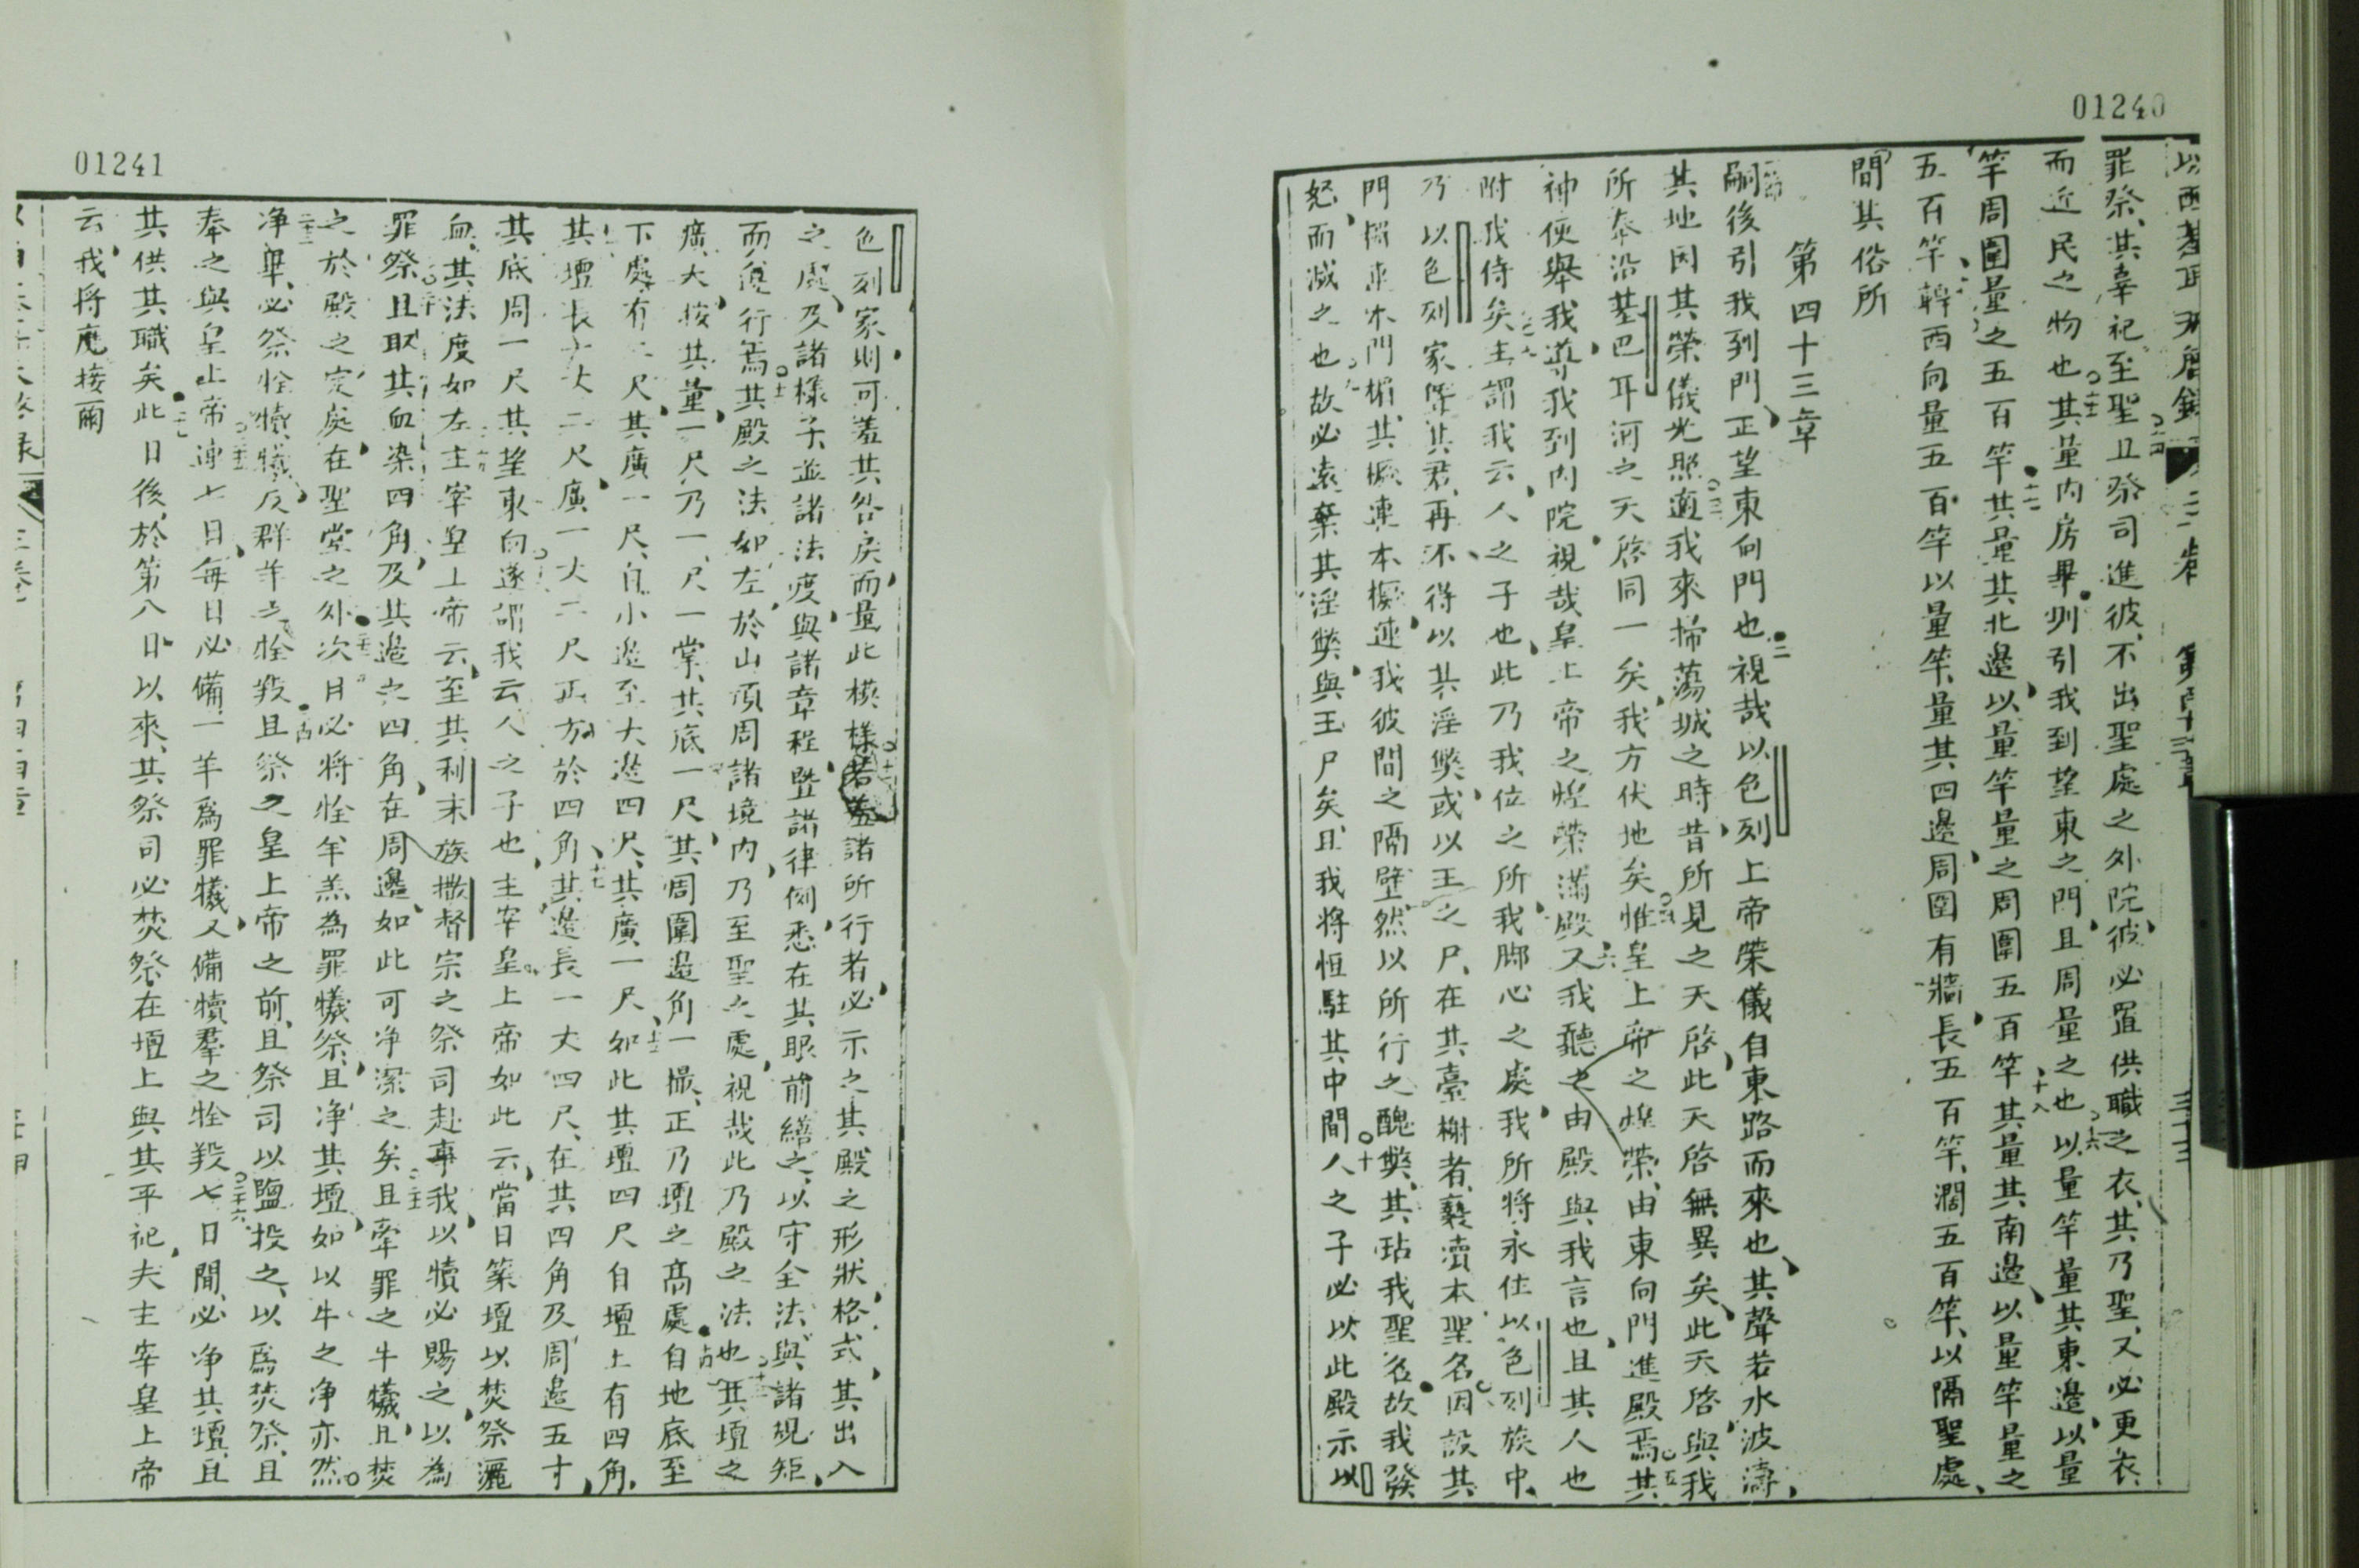 01240
罪祭、其辜祀至聖且祭司進彼、不出聖處之外院、彼必置供職之衣、其乃聖、又必更衣、
而近民之物也其量内房畢則引我到望東之門、且周量之也以量竿量其東邊、以量
竿周圍量之五百竿其量其北邊、以量竿量之周圍五百竿其量其南邊、以量竿量之
五百竿、轉西向量五百竿以量竿、量其四邊周圍有牆長五百竿、濶五百竿、以隔聖處、
間其俗所
第四十三章
嗣後引我到門、正望東向門也視哉以色列上帝榮儀自東路而來也、其聲若水波濤、
其地因其榮儀光照適我來掃蕩城之時、昔所見之天啓、此天啓無異矣、此天啓與我
所奉沿基巴耳河之天啓同一矣、我方伏地矣惟皇上帝之煌榮、由東向門進殿焉其
神使舉我、導我到内院視哉皇上帝之煌榮滿殿又我聽之由殿與我言也、且其人也
附我侍矣主謂我云、人之子也、此乃我位之所、我脚心之處、我所將永住以色列族中、
乃以色列家與其君、再不得以其淫弊、或以王之尸、在其臺榭者、褻瀆本聖名因設其
門楣連本門楣、其橛連本橛、連我彼間之隔壁、然以所行之醜弊、其玷我聖名故我發
怒、而滅之也故必遠棄其淫弊、與王尸矣、且我將恒駐其中間人之子必以此殿示以
01241
色列家、則可羞其咎戾、而量此模樣若羞諸所行者、必示之其殿之形狀格式、其出入
之處、及諸樣子、並諸法度、與諸章程、暨諸律例、悉在其眼前繕之、以守全法、與諸規矩、
而遵行焉其殿之法如左、於山頂周諸境内、乃至聖之處、視哉此乃殿之法也其壇之
廣大、按其量、一尺乃一尺一掌、其底一尺、其周圍邉角一㩜、正乃壇之高處自地底至
下處、有二尺、其廣一尺、自小邉至大邉四尺、其廣一尺如此其壇四尺自壇上有四角、
其壇長一丈二尺、廣一丈二尺正方、於四角、其邉長一丈四尺、在其四角及周邉五寸、
其底周一尺其望東向遂謂我云、人之子也、主宰皇上帝如此云、當日築壇以焚祭灑
血、其法度如左主宰皇上帝云、至其利未族撒督宗之祭司赴事我、以犢必賜之、以為
罪祭且取其血染四角、及其邉之四角、在周邉、如此可净潔之矣且牽罪之牛犧、且焚
之於殿之定處、在聖堂之外次日必將牷羊羔為罪犧祭、且净其壇、如以牛之净亦然。
净畢、必祭牷犢犧、及群羊之牷羖且祭之皇上帝之前、且祭司以鹽投之、以為焚祭、且
奉之與皇上帝連七日、每日必備、一羊爲罪犧、又備犢羣之牷羖七日間、必净其壇、且
其供其職矣此日後、於第八日、以來、其祭司必焚祭、在壇上與其平祀、夫主宰皇上帝
云、我將應接爾